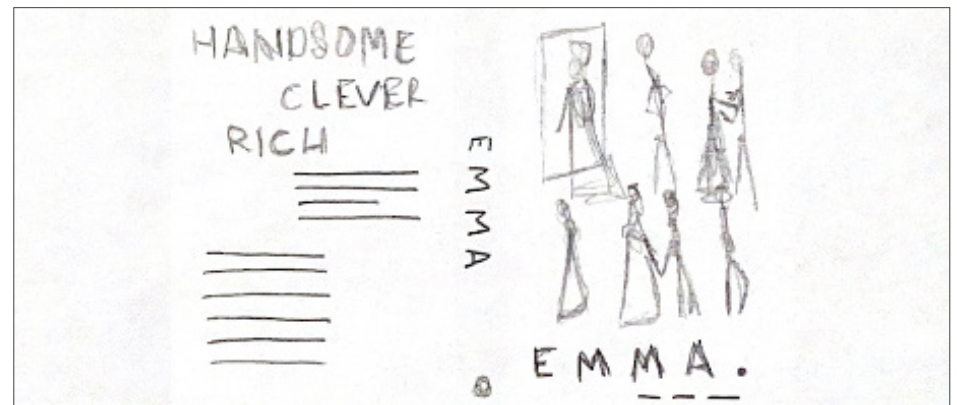 HANDSOME
CLEVER
RICH
EMMA
EMMA.